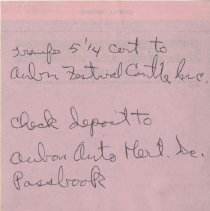 Transfer 5 1/4 cert to
Aubrn Festival Castle, Inc,
check deposit to
Aubon Auto Mert. So.
Passbook